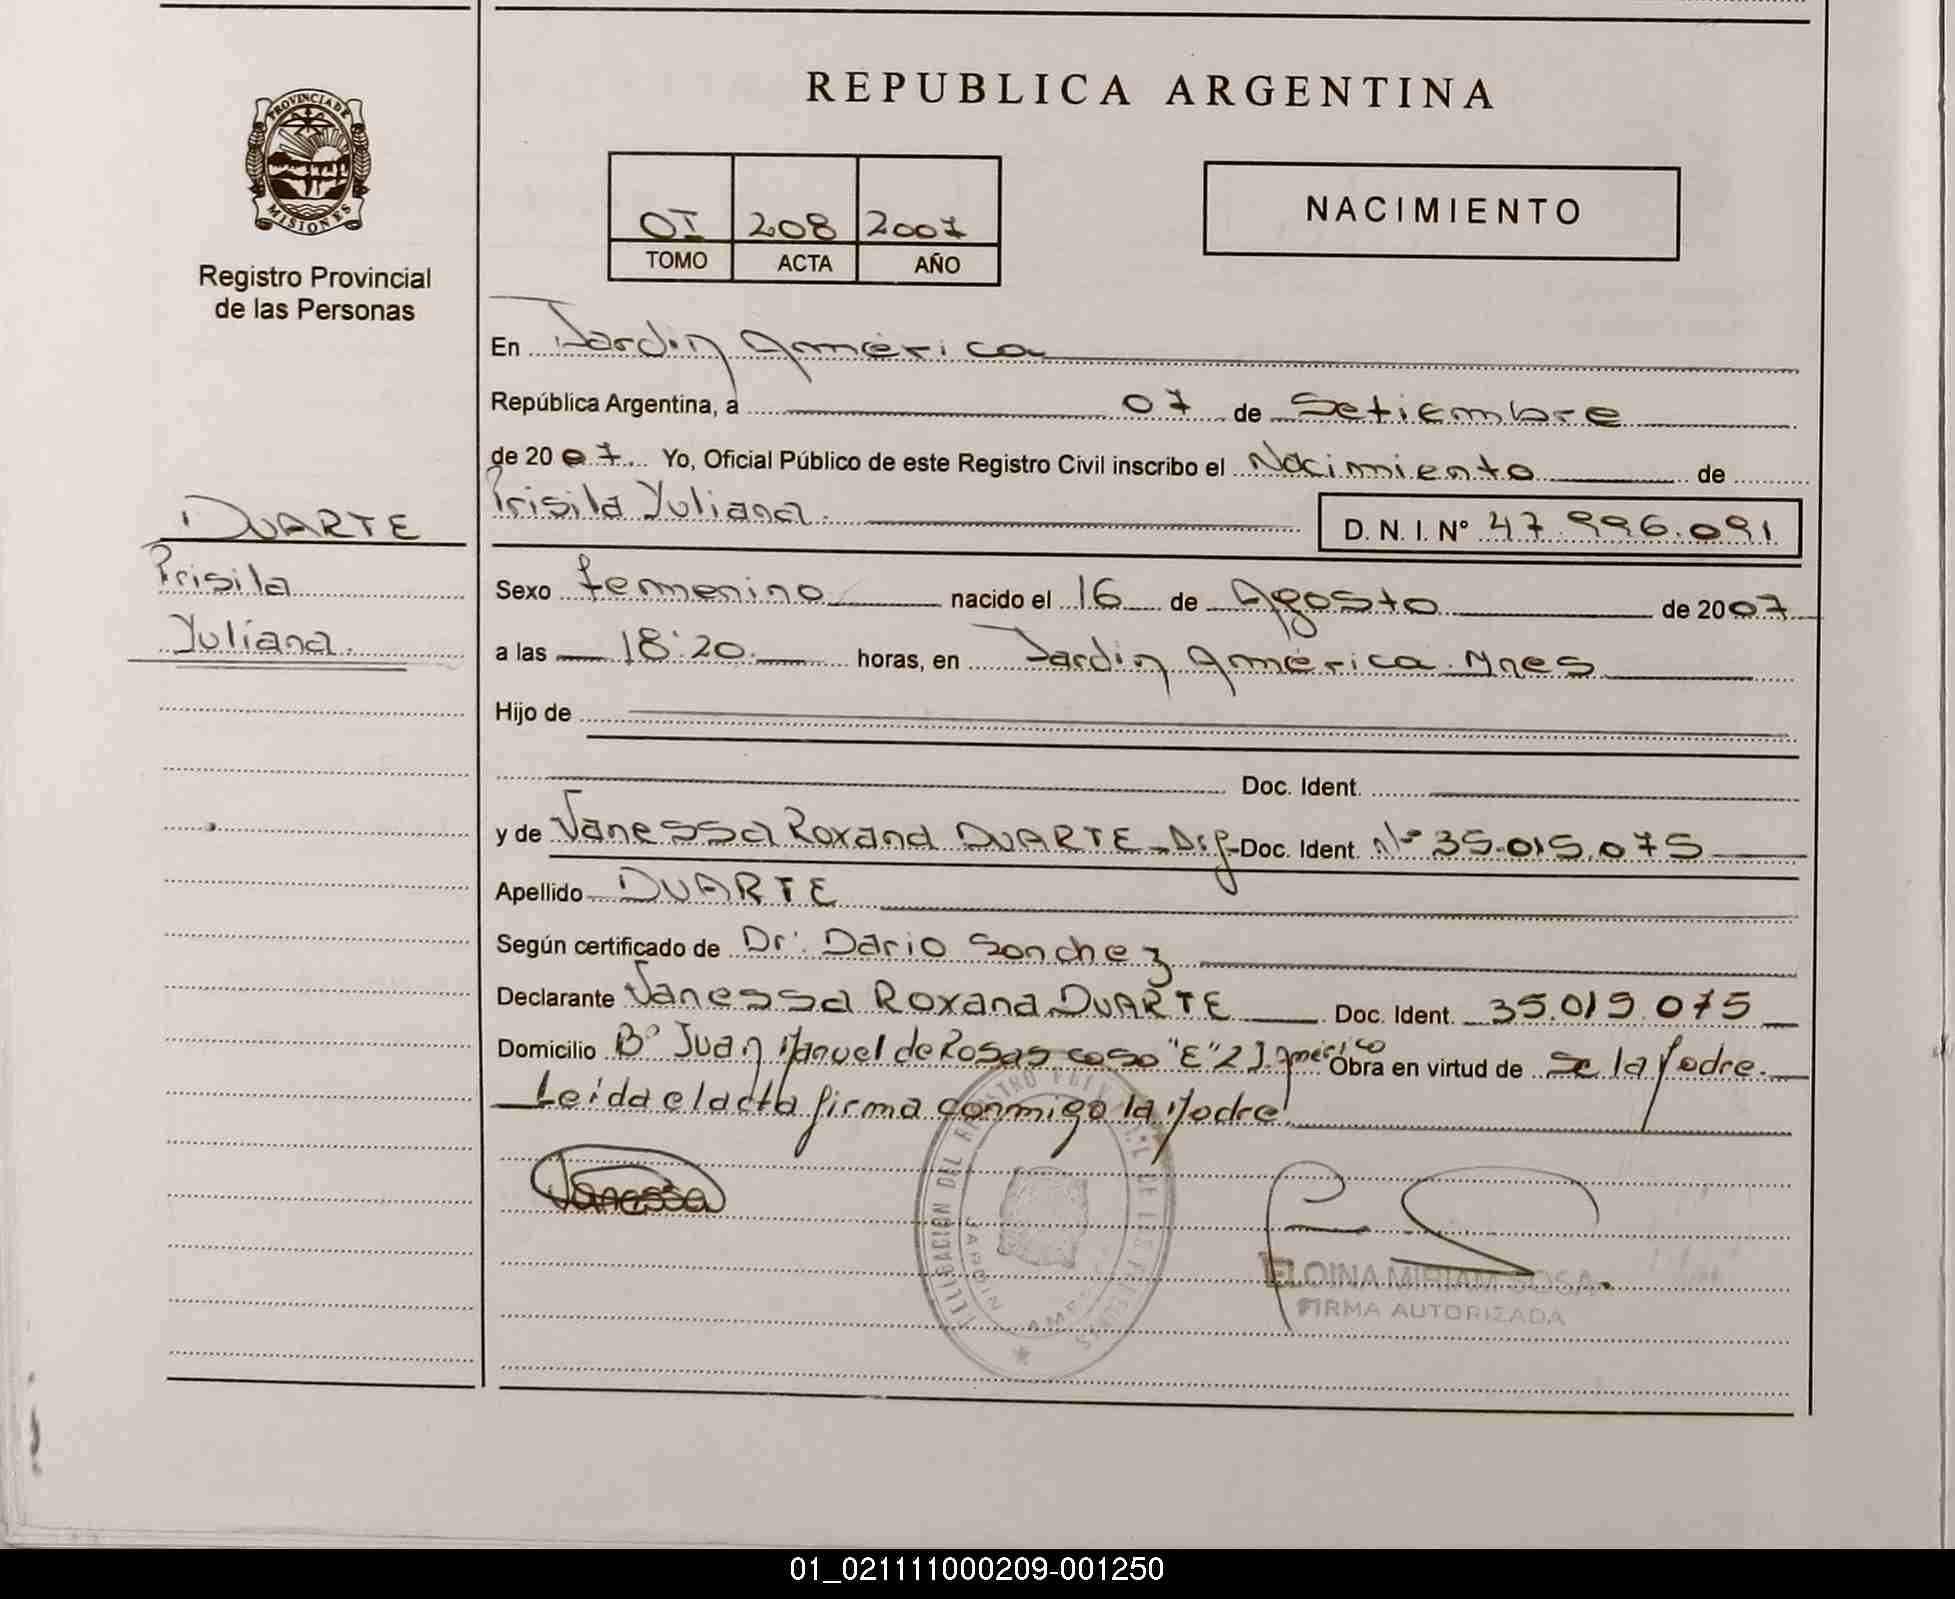 REPUBLICA ARGENTINA
PROVINCIA DE
MISIONES
Registro Provincial
de las Personas
OI 208 2007
TOMO ACTA AÑO
NACIMIENTO
En Jardin América
República Argentina, a 07 de Setiembre
de 2007. Yo, Oficial Público de este Registro Civil inscribo el Nacimiento de
Prisila Yuliana. D. N. I. Nº 47.996.091
DUARTE
Prisila
Yuliana.
Sexo femenino nacido el 16 de Agosto de 2007
a las 18:20 horas, en Jardin América. Mnes
Hijo de
Doc. Ident.
y de Vanessa Roxana DUARTE - Arg - Doc. Ident. Nº 35.015.075
Apellido DUARTE
Según certificado de Dr. Dario Sanchez
Declarante Vanessa Roxana DUARTE Doc. Ident. 35.015.075
Domicilio Bº Juan Manuel de Rosas casa "E" 2 J. América Obra en virtud de Se la Madre.
Leída el acta firma conmigo la Madre.
Vanessa
DELEGACION DEL REGISTRO PROVINCIAL DE LAS PERSONAS
JARDIN AMERICA
ELOINA MIRIAM SOSA
FIRMA AUTORIZADA
01_021111000209-001250